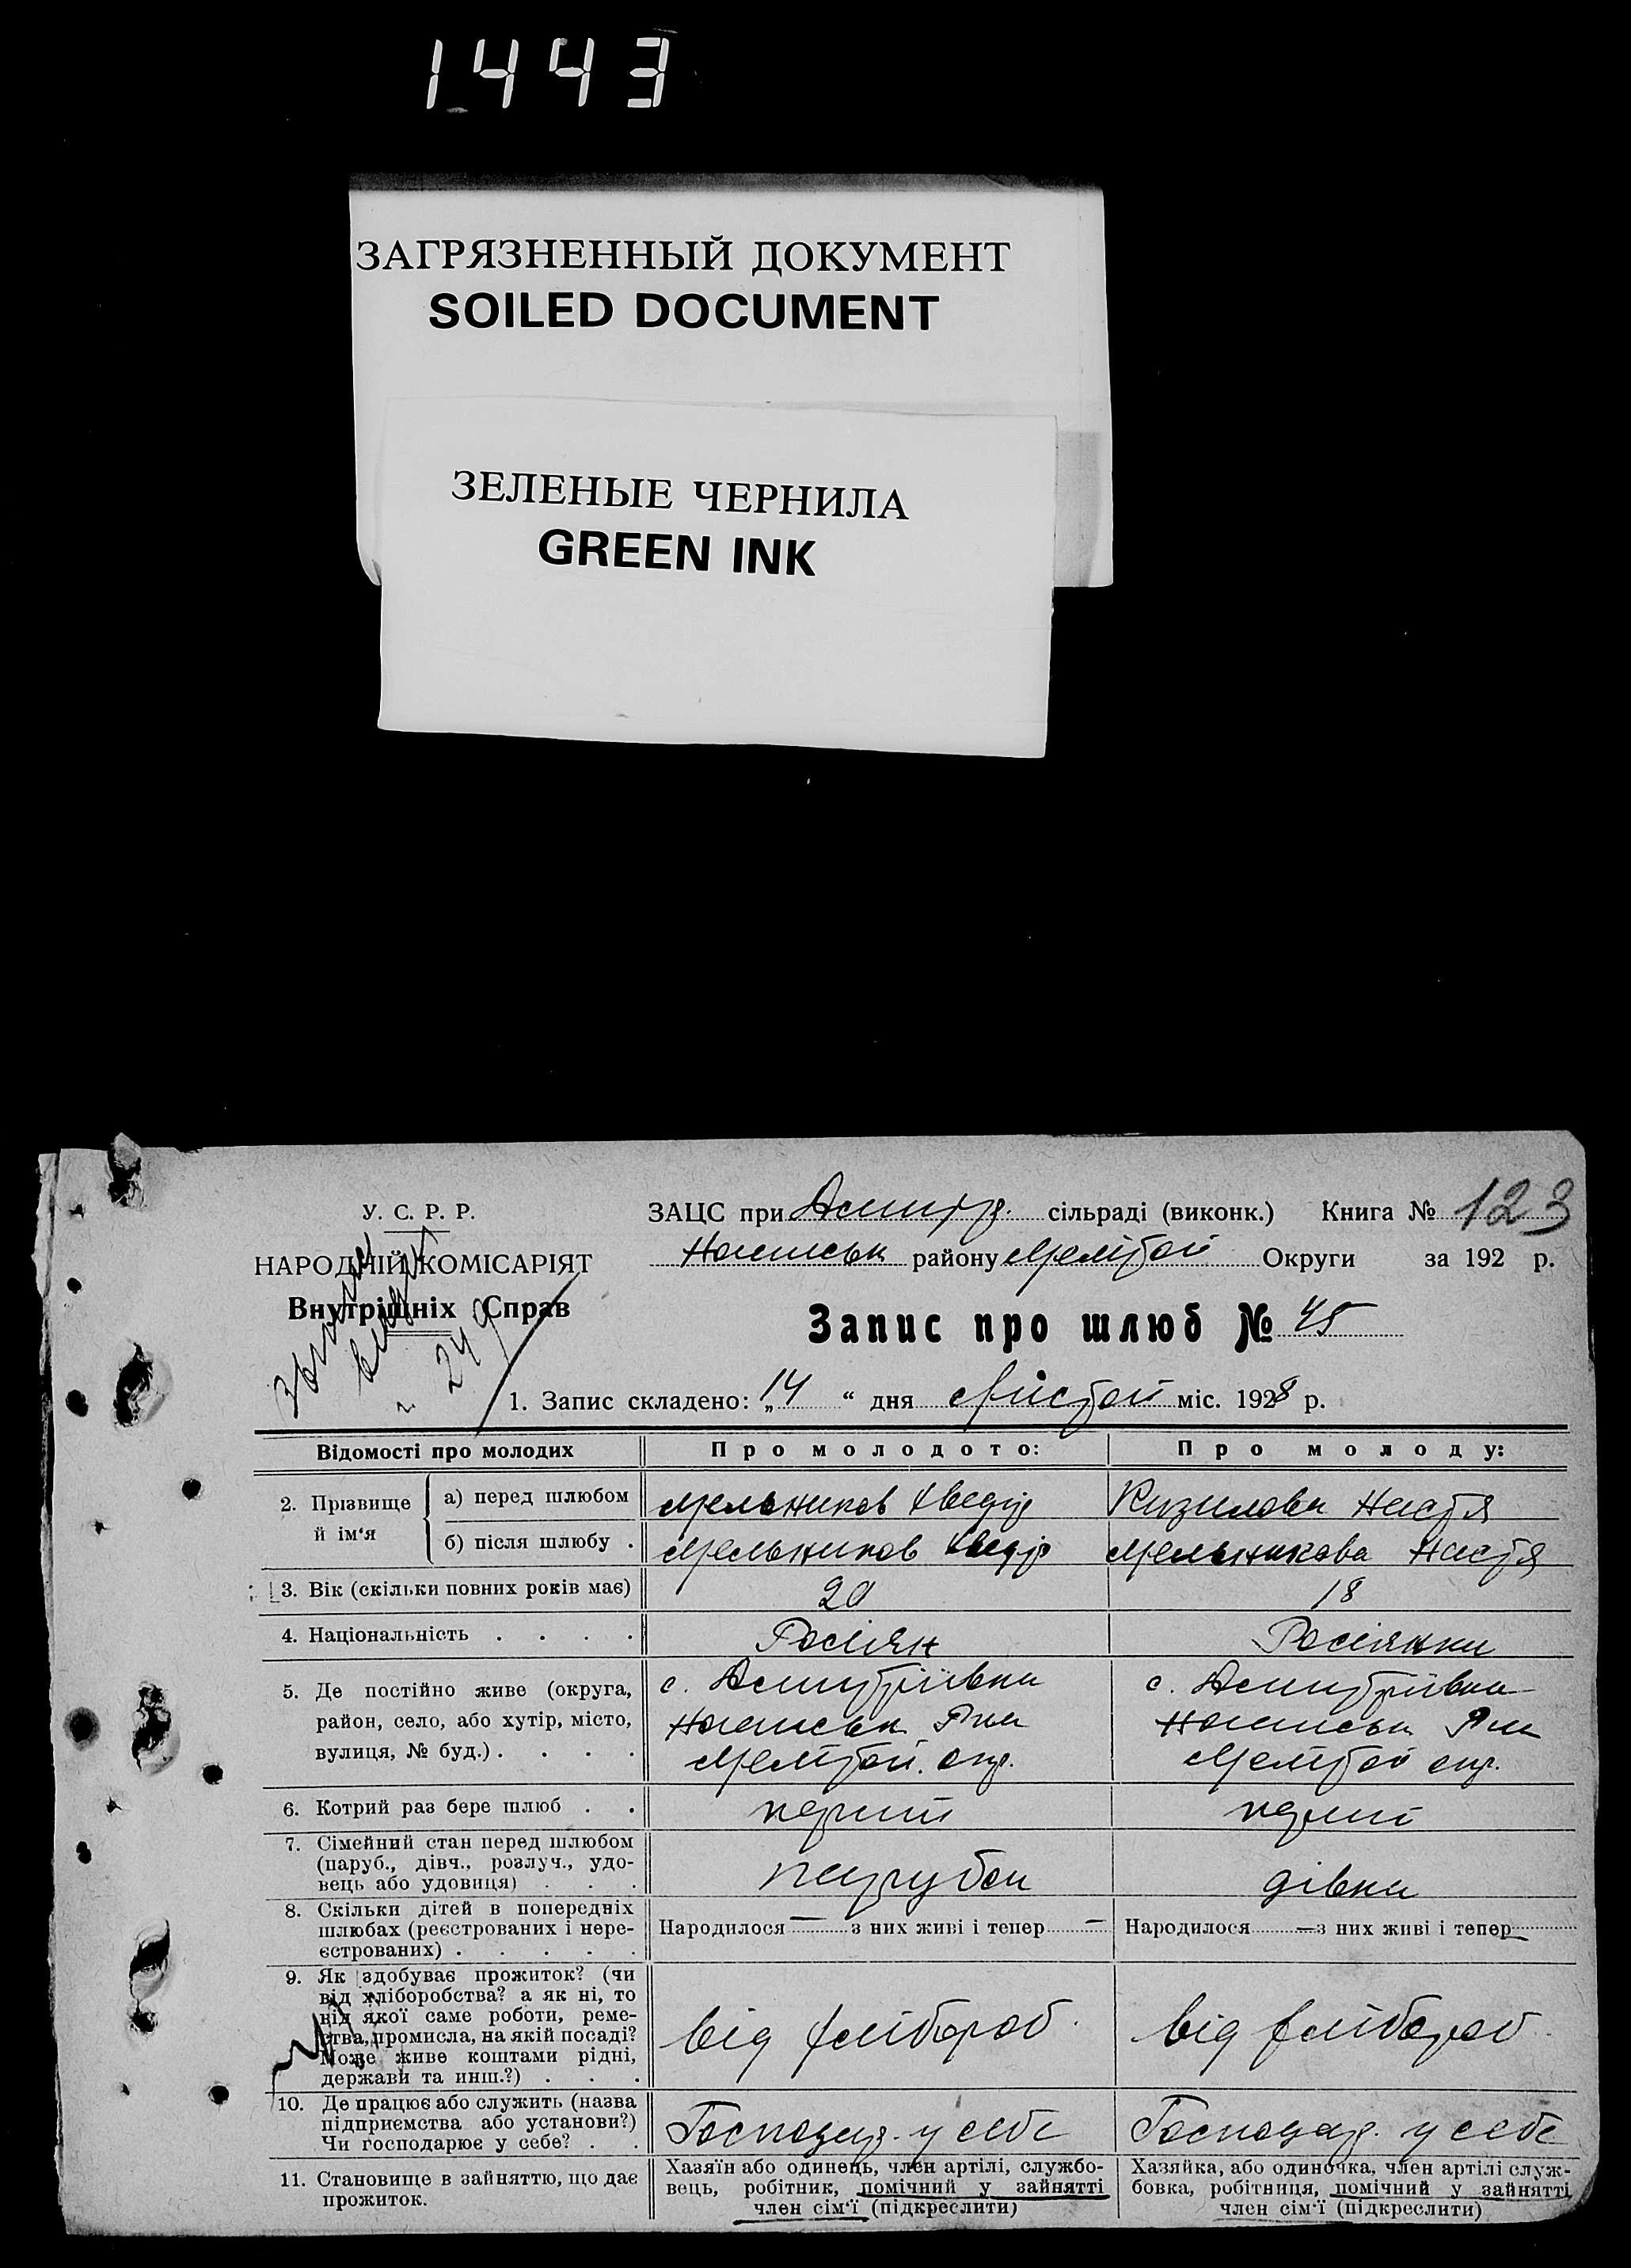 1443
ЗАГРЯЗНЕННЫЙ ДОКУМЕНТ
SOILED DOCUMENT
ЗЕЛЕНЫЕ ЧЕРНИЛА
GREEN INK
У. С. Р. Р.
НАРОДНІЙ КОМІСАРІЯТ
Внутрішніх Справ
249
ЗАЦС при Дмитр. сільраді (виконк.) Книга № 123
району Мелітоп Округи за 192 р.
Запис про шлюб № 45
1. Запис складено: „14“ дня Листоп міс. 1928 р.
Відомості про молодих
Про молодото:
Про молоду:
2. Прізвище й ім‘я
а) перед шлюбом
Мельников Хведір
Кизилова Настя
б) після шлюбу .
Мельников Хведір
Мельникова Настя
3. Вік (скільки повних років має)
20
18
4. Національність . . . .
Росіян
Росіянка
5. Де постійно живе (округа,
район, село, або хутір, місто,
вулиця, № буд.). . . . .
с. Дмитріївка
Р-на
Мелітоп. окр.
с. Дмитріївка
Р-на
Мелітоп окр.
6. Котрий раз бере шлюб . .
перший
перший
7. Сімейний стан перед шлюбом
(паруб., дівч., розлуч., удо-
вець або удовиця) . . .
парубок
дівка
8. Скільки дітей в попередніх
шлюбах (реєстрованих і нере-
єстрованих) . . . . .
Народилося — з них живі і тепер —
Народилося — з них живі і тепер —
9. Як здобуває прожиток? (чи
від хліборобства? а як ні, то
від якої саме роботи, реме-
ства, промисла, на якій посаді?
Може живе коштами рідні,
держави та инш.?) . . .
від хлібороб.
від хлібороб.
10. Де працює або служить (назва
підприємства або установи?)
Чи господарює у себе? . .
Господар. у себе
Господар. у себе
11. Становище в зайняттю, що дає
прожиток.
Хазяїн або одинець, член артілі, службо-
вець, робітник, помічний у зайнятті
член сім‘ї (підкреслити)
Хазяйка, або одиночка, член артілі служ-
бовка, робітниця, помічний у зайнятті
член сім‘ї (підкреслити)